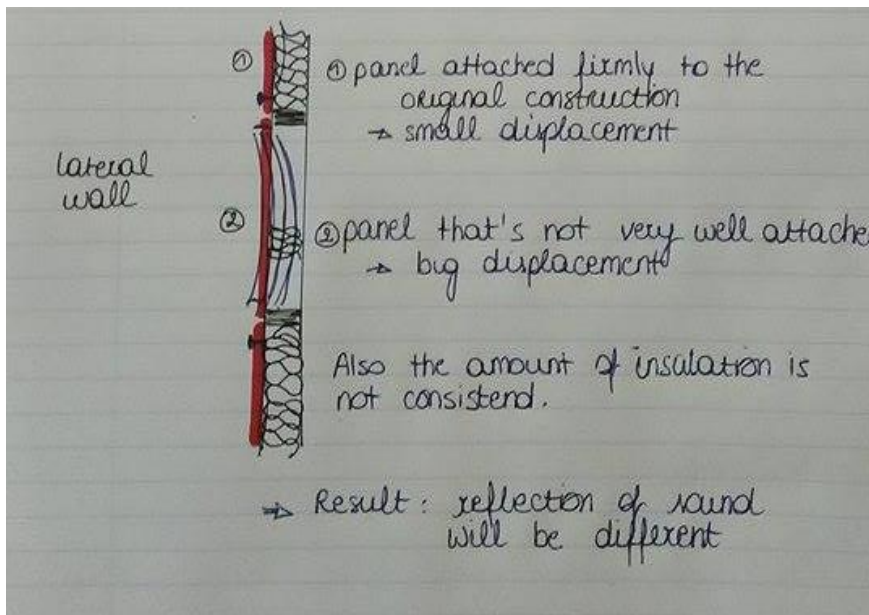 ① ① panel attached firmly to the
original construction
→ small displacement
lateral
wall
② ② panel that's not very well attache
→ big displacement
Also the amount of insulation is
not consistend.
⇒ Result : reflection of sound
will be different